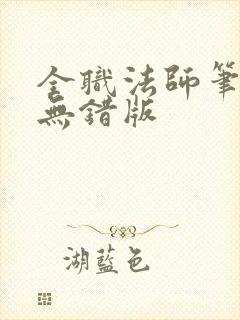 全職法師筆
無錯版
湖藍色